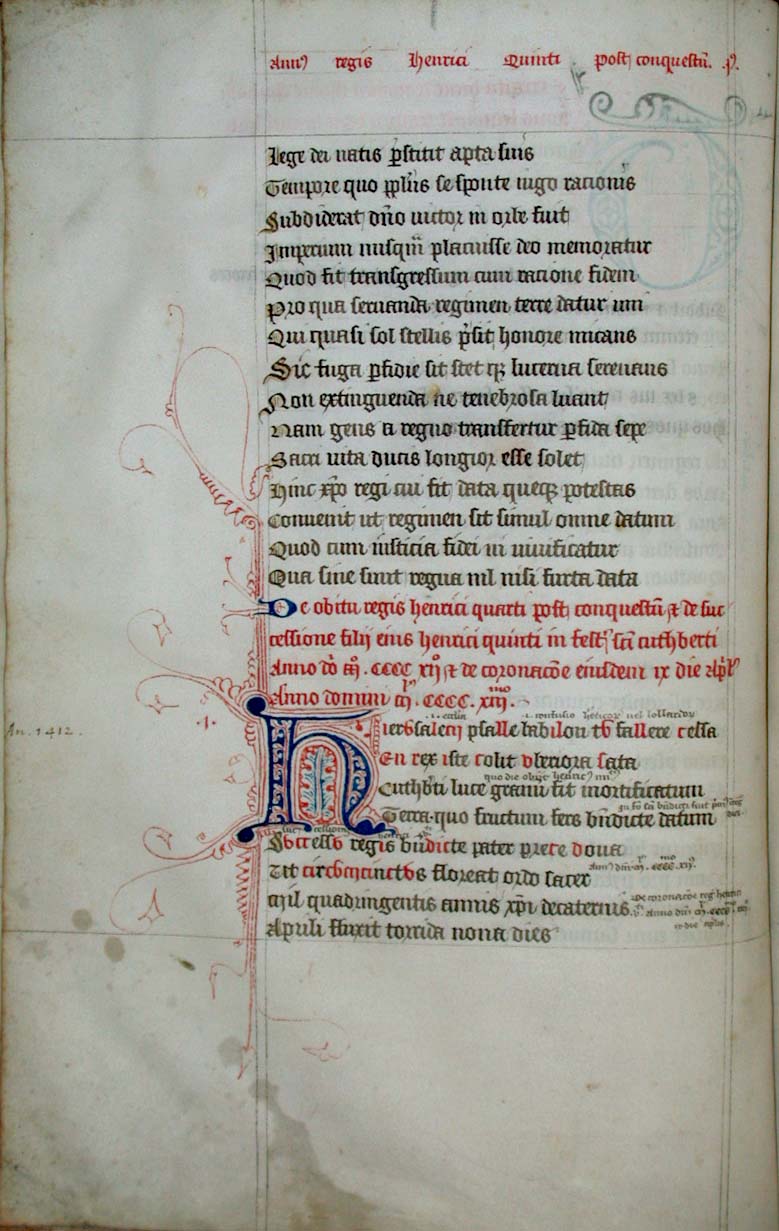 Annus regis Henrici Quinti post conquestum. p̄.
Lege dei natis p̄stitit apta suis
Tempore quo ppl̄us se sponte iugo racionis
Subdiderat dn̄o uictor in orbe fuit
Imperium nusqm̄ placuisse deo memoratur
Quod fit transgressum cum racione fidem
Pro qua seruanda regimen terre datur uni
Qui quasi sol stellis p̄sit honore micans
Sic fuga ꝑfidie sit stet qꝫ lucerna serenans
Non extinguenda ne tenebrosa luant
Nam gens a regno transfertur ꝑfida sepe
Sacri uita ducis longior esse solet
Hinc xp̄o regi cui fit data queqꝫ potestas
Conuenit ut regimen sit simul omne datum
Quod cum iusticia fidei ui uiuificatur
Qua sine sunt regna nil nisi furta data
De obitu regis henrici quarti post conquestū & de suc
cessione filij eius henrici quinti in festo sc̄i cuthberti
Anno dō m̄. cccc xij & de coronacōe eiusdem ix die Apl̄'
Anno domini m̄. cccc. xiij.
An. 1412.
HierUsalem psalle babilon tU fallere cessa
En rex iste colit Uberiora sata
Cuthb̄ti luce
quo die obijt henric' iiij
fit mortificatum
Terra quo fructum fers bn̄dicte datum
SUccessU regis bn̄dicte pater prece dona
Ut circUmcinctUs floreat ordo sacer
Mil quadringentis annis xp̄i decaternis
Aprili fluxit torrida nona dies